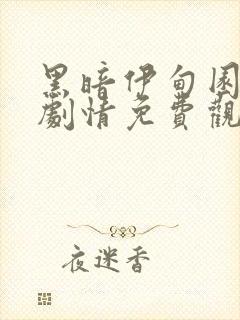 黑暗伊甸園
劇情免費觀
夜迷香